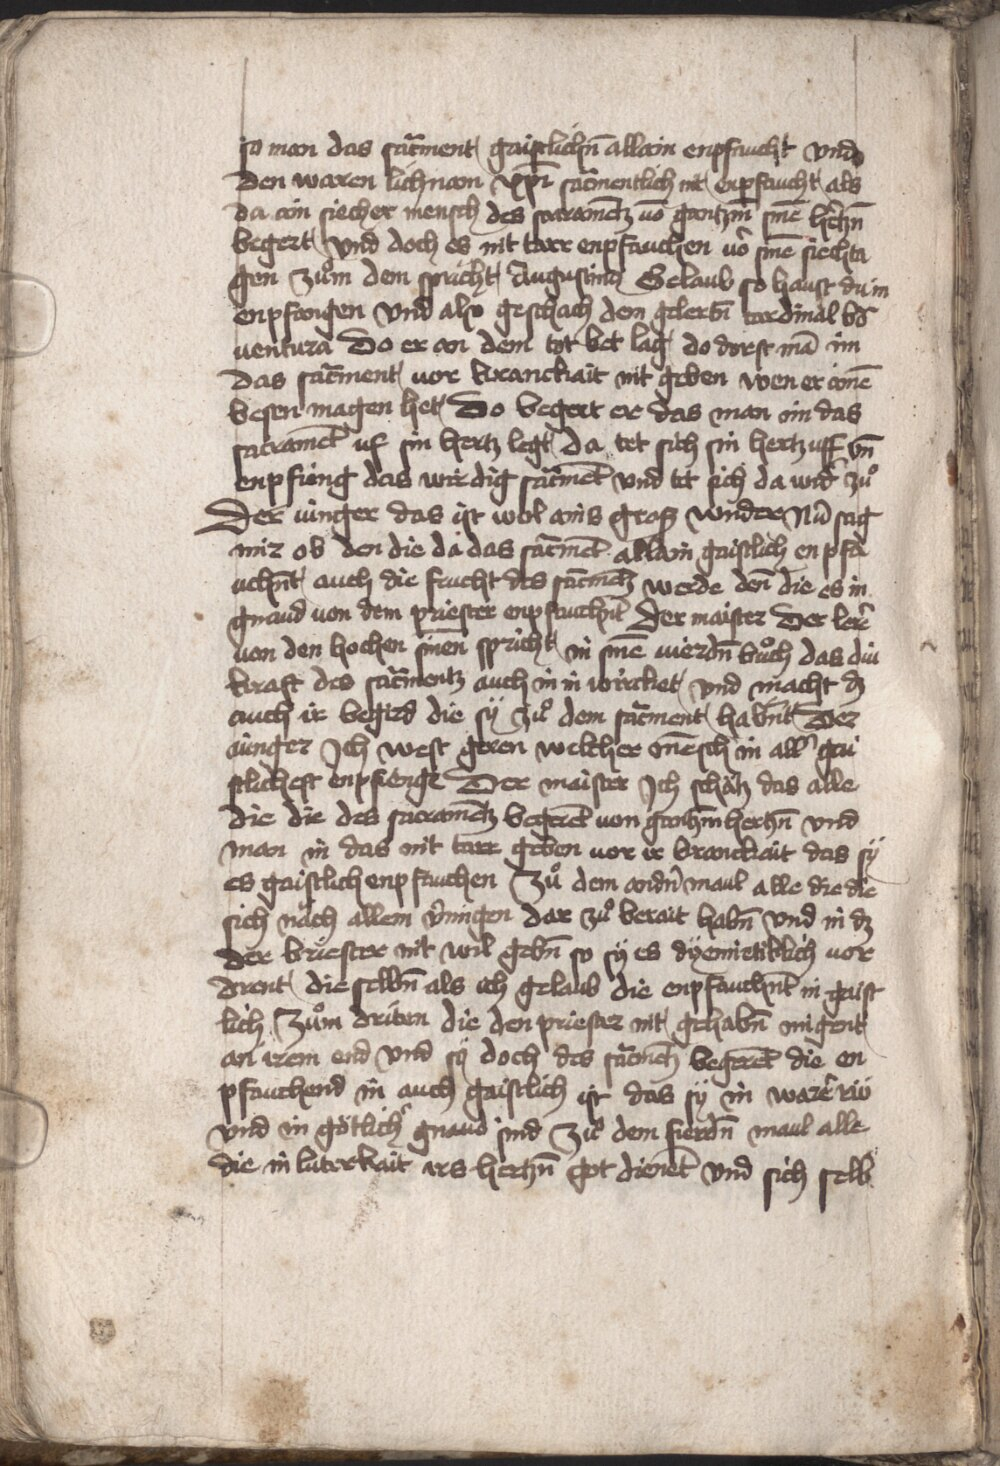 so man das sacͣment gaistlichn̄ allain enpfaucht vnd
den waren lichnam xp̄i sacͣmentlich nit enpfaucht als
da ain siecher mensch des sacramētz vō gantzm̄ sinē hertzn̄
begert vnd doch es nit tarr enpfauchen vōr sinē siechta
gen Zuͦm dem spricht Augustinus Gelaub so haust du in
enpfangen vnd also geschach dem gelertn̄ cardinal bō
ventura Do er an dem tot bet lag do dorst mā im
das sacͣment vor kranckait nit geben wen er ainē
besen magen het Do begert er das man im das
sacramēt uf sin hertz legt da tet sich sin hertz uff vn̄
enpfieng das wirdig sacͣmēt vnd tet sich da widͬ zuͦ
Der iunger das ist wol ains groß wnder Nū sag
mir ob den die da das sacͣmēt allain gaistlich enpfa
uchn̄t auch die frucht des sacͣmētz werde den̄ die es in
gnaud von dem priester enpfauchn̄t Der maister Der lerͬ
von den hochen sinen spricht in sinē vierdn̄ buͦch das diu
kraft des sacͣmentz auch in in wircket vnd macht dz
auch ir begird die sÿ zuͦ dem sacͣment habn̄t Der
iunger Ich west geren welcher mēsch in allͬ gai
stlichest enpfienge Der maister Ich schätz das alle
die die des sacramētz begerēt von gantzm̄ hertzn̄ vnd
man in das nit tarr geben vor ir kranckait das sÿ
es gaistlich enpfauchen Zuͦ dem andn̄ maul alle die die
sich nach allem vͬmigen dar zuͦ berait habn̄ vnd in dz
der briester nit wil gebn̄ so sÿ es dÿemietiklich vor
drent die selbn̄ als ich gelaub die enpfauchn̄t in gaist
lich Zuͦm driten die den priester nit gehabn̄ migent
an irem end vnd sÿ doch des sacͣmētz begerēt die en
pfauchend in auch gaistlich ist das sÿ in warͬ rü
vnd in götlichͬ gnaud sind Zuͦ dem fierdn̄ maul alle
die in luterkait irs hertzn̄ got dienēt vnd sich selb